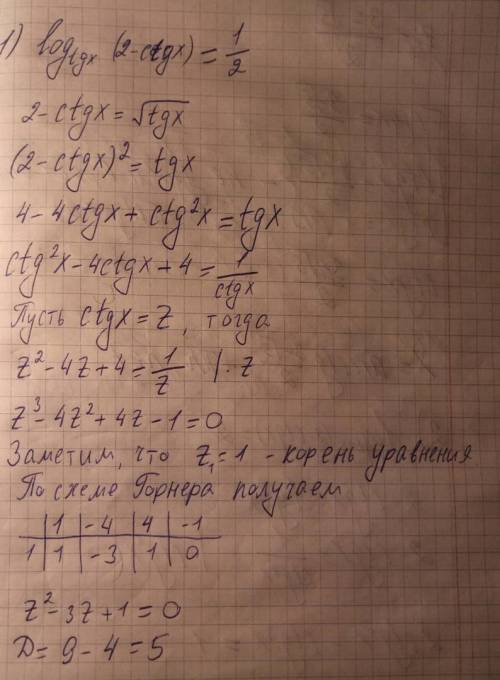 1) log_tgx (2-ctgx) = 1/2
2-ctgx = √tgx
(2-ctgx)² = tgx
4-4ctgx+ctg²x = tgx
ctg²x-4ctgx+4 = 1/ctgx
Пусть ctgx = z, тогда
z²-4z+4 = 1/z |·z
z³-4z²+4z-1=0
Заметим, что z₁=1 - корень уравнения
По схеме Горнера получаем
| 1 | -4 | 4 | -1
1 | 1 | -3 | 1 | 0
z²-3z+1=0
D=9-4=5